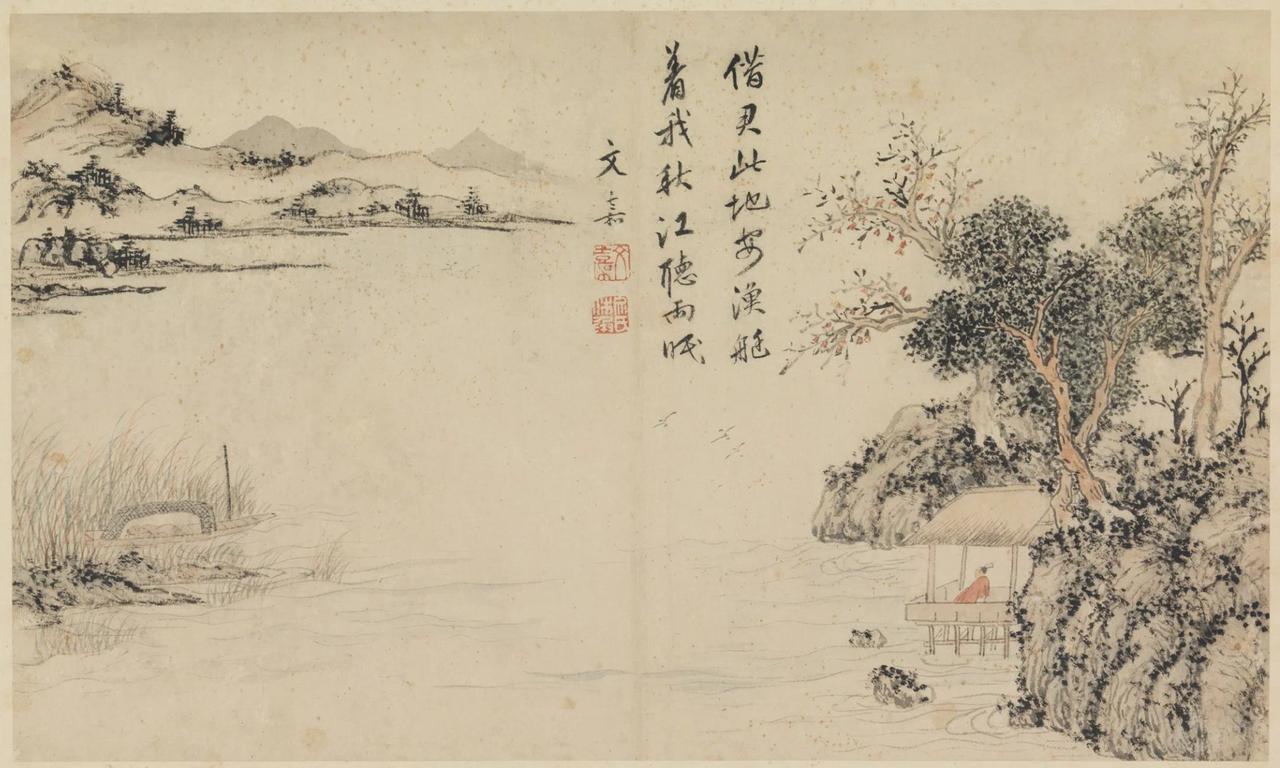 借君此地安漁艇
着我秋江聽雨眠
文嘉